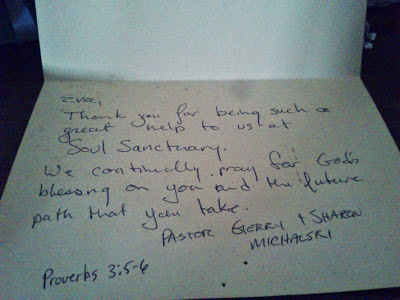 Evee,
Thank you for being such a
great help to us at
Soul Sanctuary.
We continually pray for God's
blessing on you and the future
path that you take.
PASTOR GERRY + SHARON
MICHALSKI
Proverbs 3:5-6